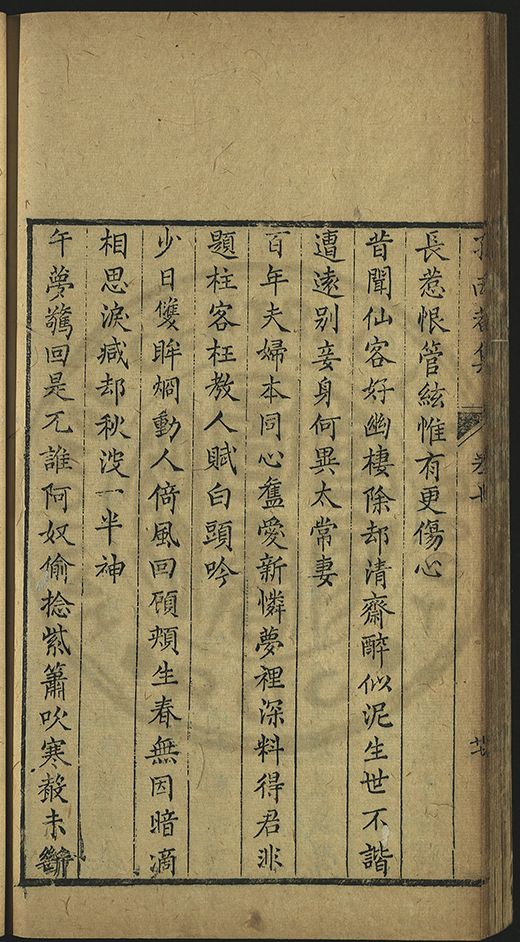 長惹恨管絃惟有更傷心
昔聞仙客好幽棲除却清齋醉似泥生世不諧
遭遠别妾身何異太常妻
百年夫婦本同心舊愛新憐夢裡深料得君非
題柱客枉教人賦白頭吟
少日雙眸烱動人倚風回頋頰生春無因暗滴
相思淚减却秋波一半神
午夢驚回是兀誰阿奴偷捻紫簫吹寒聲未斷